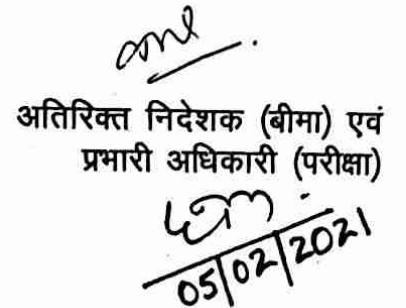 अतिरिक्त निदेशक (बीमा) एवं
प्रभारी अधिकारी (परीक्षा)
05/02/2021